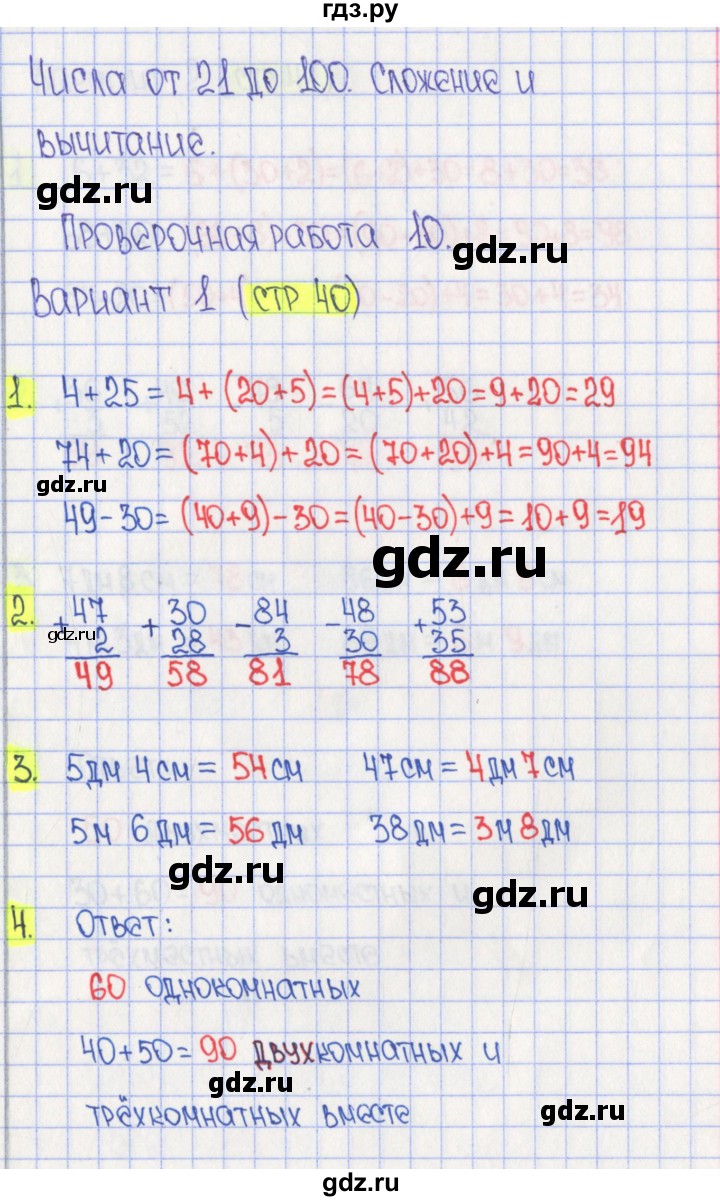 гдз.ру
Числа от 21 до 100. Сложение и
вычитание.
gdz.ru
Проверочная работа 10.
gdz.ru
Вариант 1 (стр 40)
1. 4+25 = 4+(20+5)=(4+5)+20=9+20=29
74+20=(70+4)+20=(70+20)+4=90+4=94
gdz.ru
49-30=(40+9)-30=(40-30)+9=10+9=19
gdz.ru
2. +47 +30 -84 -48 +53
gdz.ru
2 28 3 30 35
49 58 81 78 88
3. 5дм 4см = 54см 47см = 4дм 7см
5м 6дм = 56дм 38дм = 3м 8дм
gdz.ru
gdz.ru
4. Ответ:
60 однокомнатных
40+50=90 двухкомнатных и
gdz.ru
трёхкомнатных вместе
gdz.ru
gdz.ru